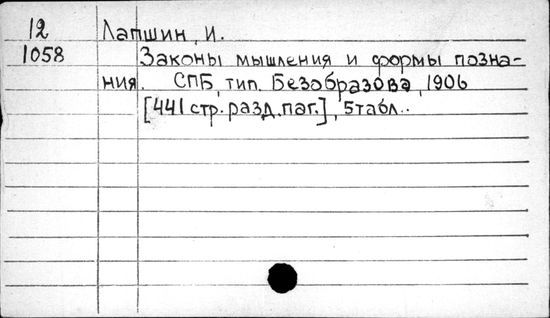 12 Лапшин, И.
1058 Законы мышления и формы позна-
ния. СПБ, тип. Безобразова, 1906
[441 стр. разд. паг.], 5 табл..